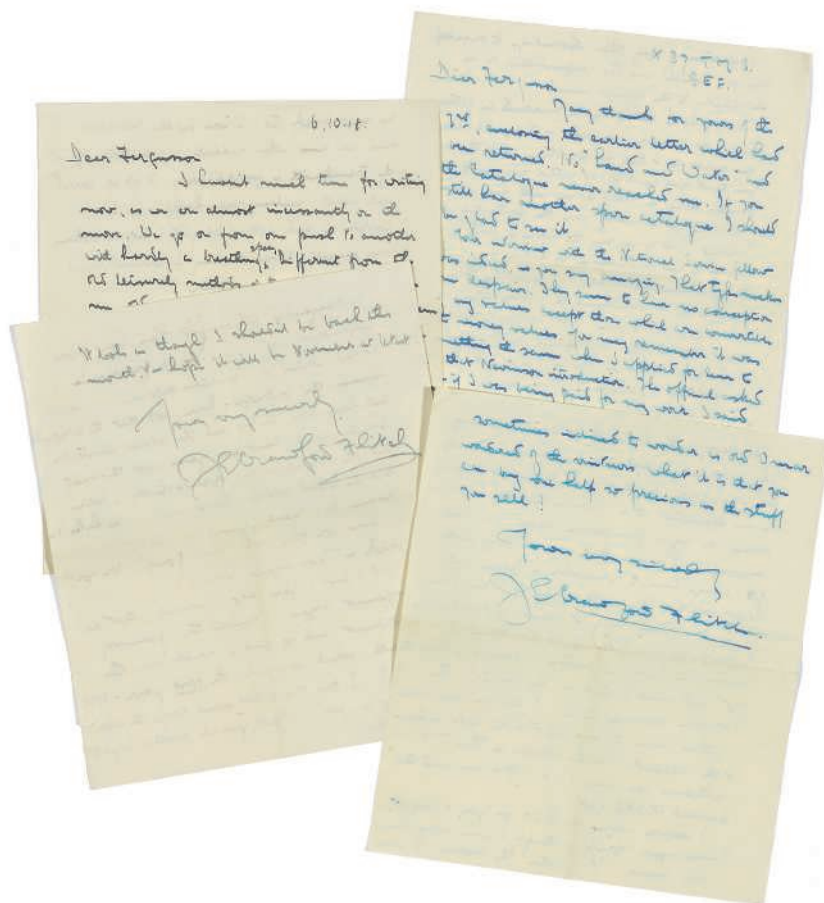 6.10.18.
Dear Fergusson
I haven't much time for writing
now, as we are almost incessantly on the
move. We go on from one push to another
with hardly a breathing space. Different from the
old leisurely methods
It looks as though I shouldn't be back this
month. I hope it will be November at latest
Yours very sincerely
J E Crawford Flitch
B E F.
Dear Fergusson
Many thanks for yours of the
enclosing the earlier letter which had
been returned. No "Land and Water" and
the Catalogue never reached me. If you
still have another spare catalogue I should
be glad to see it
Your interview with the National Service fellow
was indeed as you say amusing. That type makes
me despair. They seem to have no conception
any values except those which are convertible
to money values. You may remember it was
the same when I applied for leave to
that introduction. The official asked
if I was being paid for my work. I said
sometimes inclined to wonder as old Omar
wondered of the vintners what it is that you
can buy one half so precious as the stuff
you sell!
Yours very sincerely
J E Crawford Flitch.